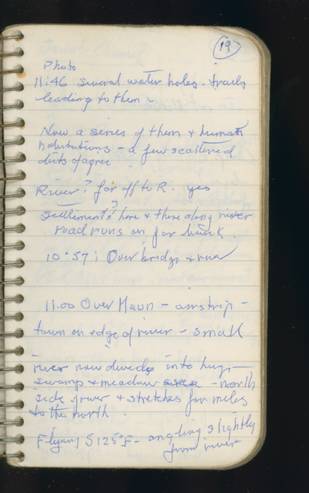 19
Photo
11:46 several water holes - trails
leading to them -
Now a series of them & human
habitations - a few scattered
River? far off to R. yes
settlements here & there along river
road runs on far bank.
10:57: Over bridge & river
11.00 Over Maun - airstrip -
town on edge of river - small
river now divides into huge
swamp & meadow - north
side of river & stretches for miles
to the north.
Flying S 125° E - angling slightly
from river